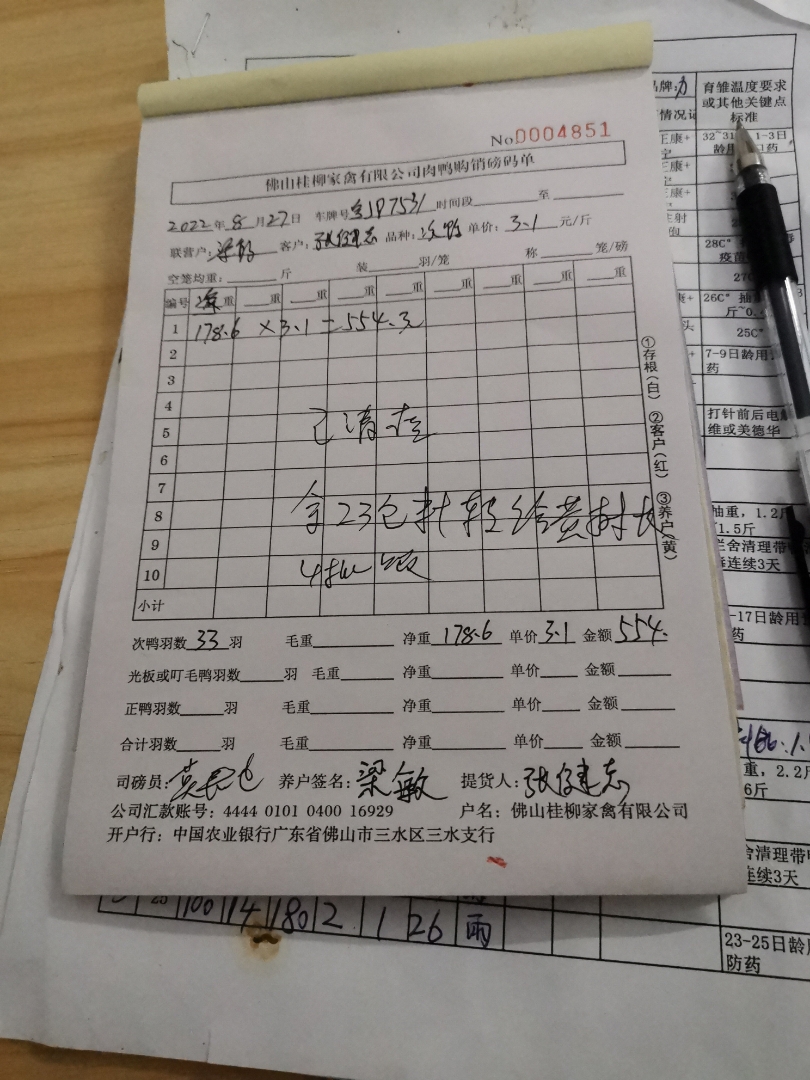 No D004851
佛山桂柳家禽有限公司肉鸭购销磅码单
2022年8月27日 车牌号 时间段 至
联营户: 梁敏 客户: 张健志 品种: 次鸭 单价: 3.1 元/斤
空笼均重: 斤 装 羽/笼 称 笼/磅
编号 净重 重 重 重 重 重 重 重 重
1 178.6 × 3.1 = 554.3元
2
3
4
5 已清查
6
7
8 23包料转给黄村长
9
10 4批
小计
①存根(白) ②客户(红) ③养户(黄)
次鸭羽数 33 羽 毛重 净重 178.6 单价 3.1 金额 554.
光板或叮毛鸭羽数 羽 毛重 净重 单价 金额
正鸭羽数 羽 毛重 净重 单价 金额
合计羽数 羽 毛重 净重 单价 金额
司磅员: 养户签名: 梁敏 提货人: 张健志
公司汇款账号: 4444 0101 0400 16929 户名: 佛山桂柳家禽有限公司
开户行: 中国农业银行广东省佛山市三水区三水支行
25 100 14 180 2 1 26 雨
育雏温度要求
或其他关键点
标准
1-3日
28C°
26C°
25C°
7-9日龄用
药
打针前后电
维或美德华
抽重, 1.2斤
1.5斤
栏舍清理带
连续3天
-17日龄用
药
重, 2.2
6斤
舍清理带
连续3天
23-25日龄
防药